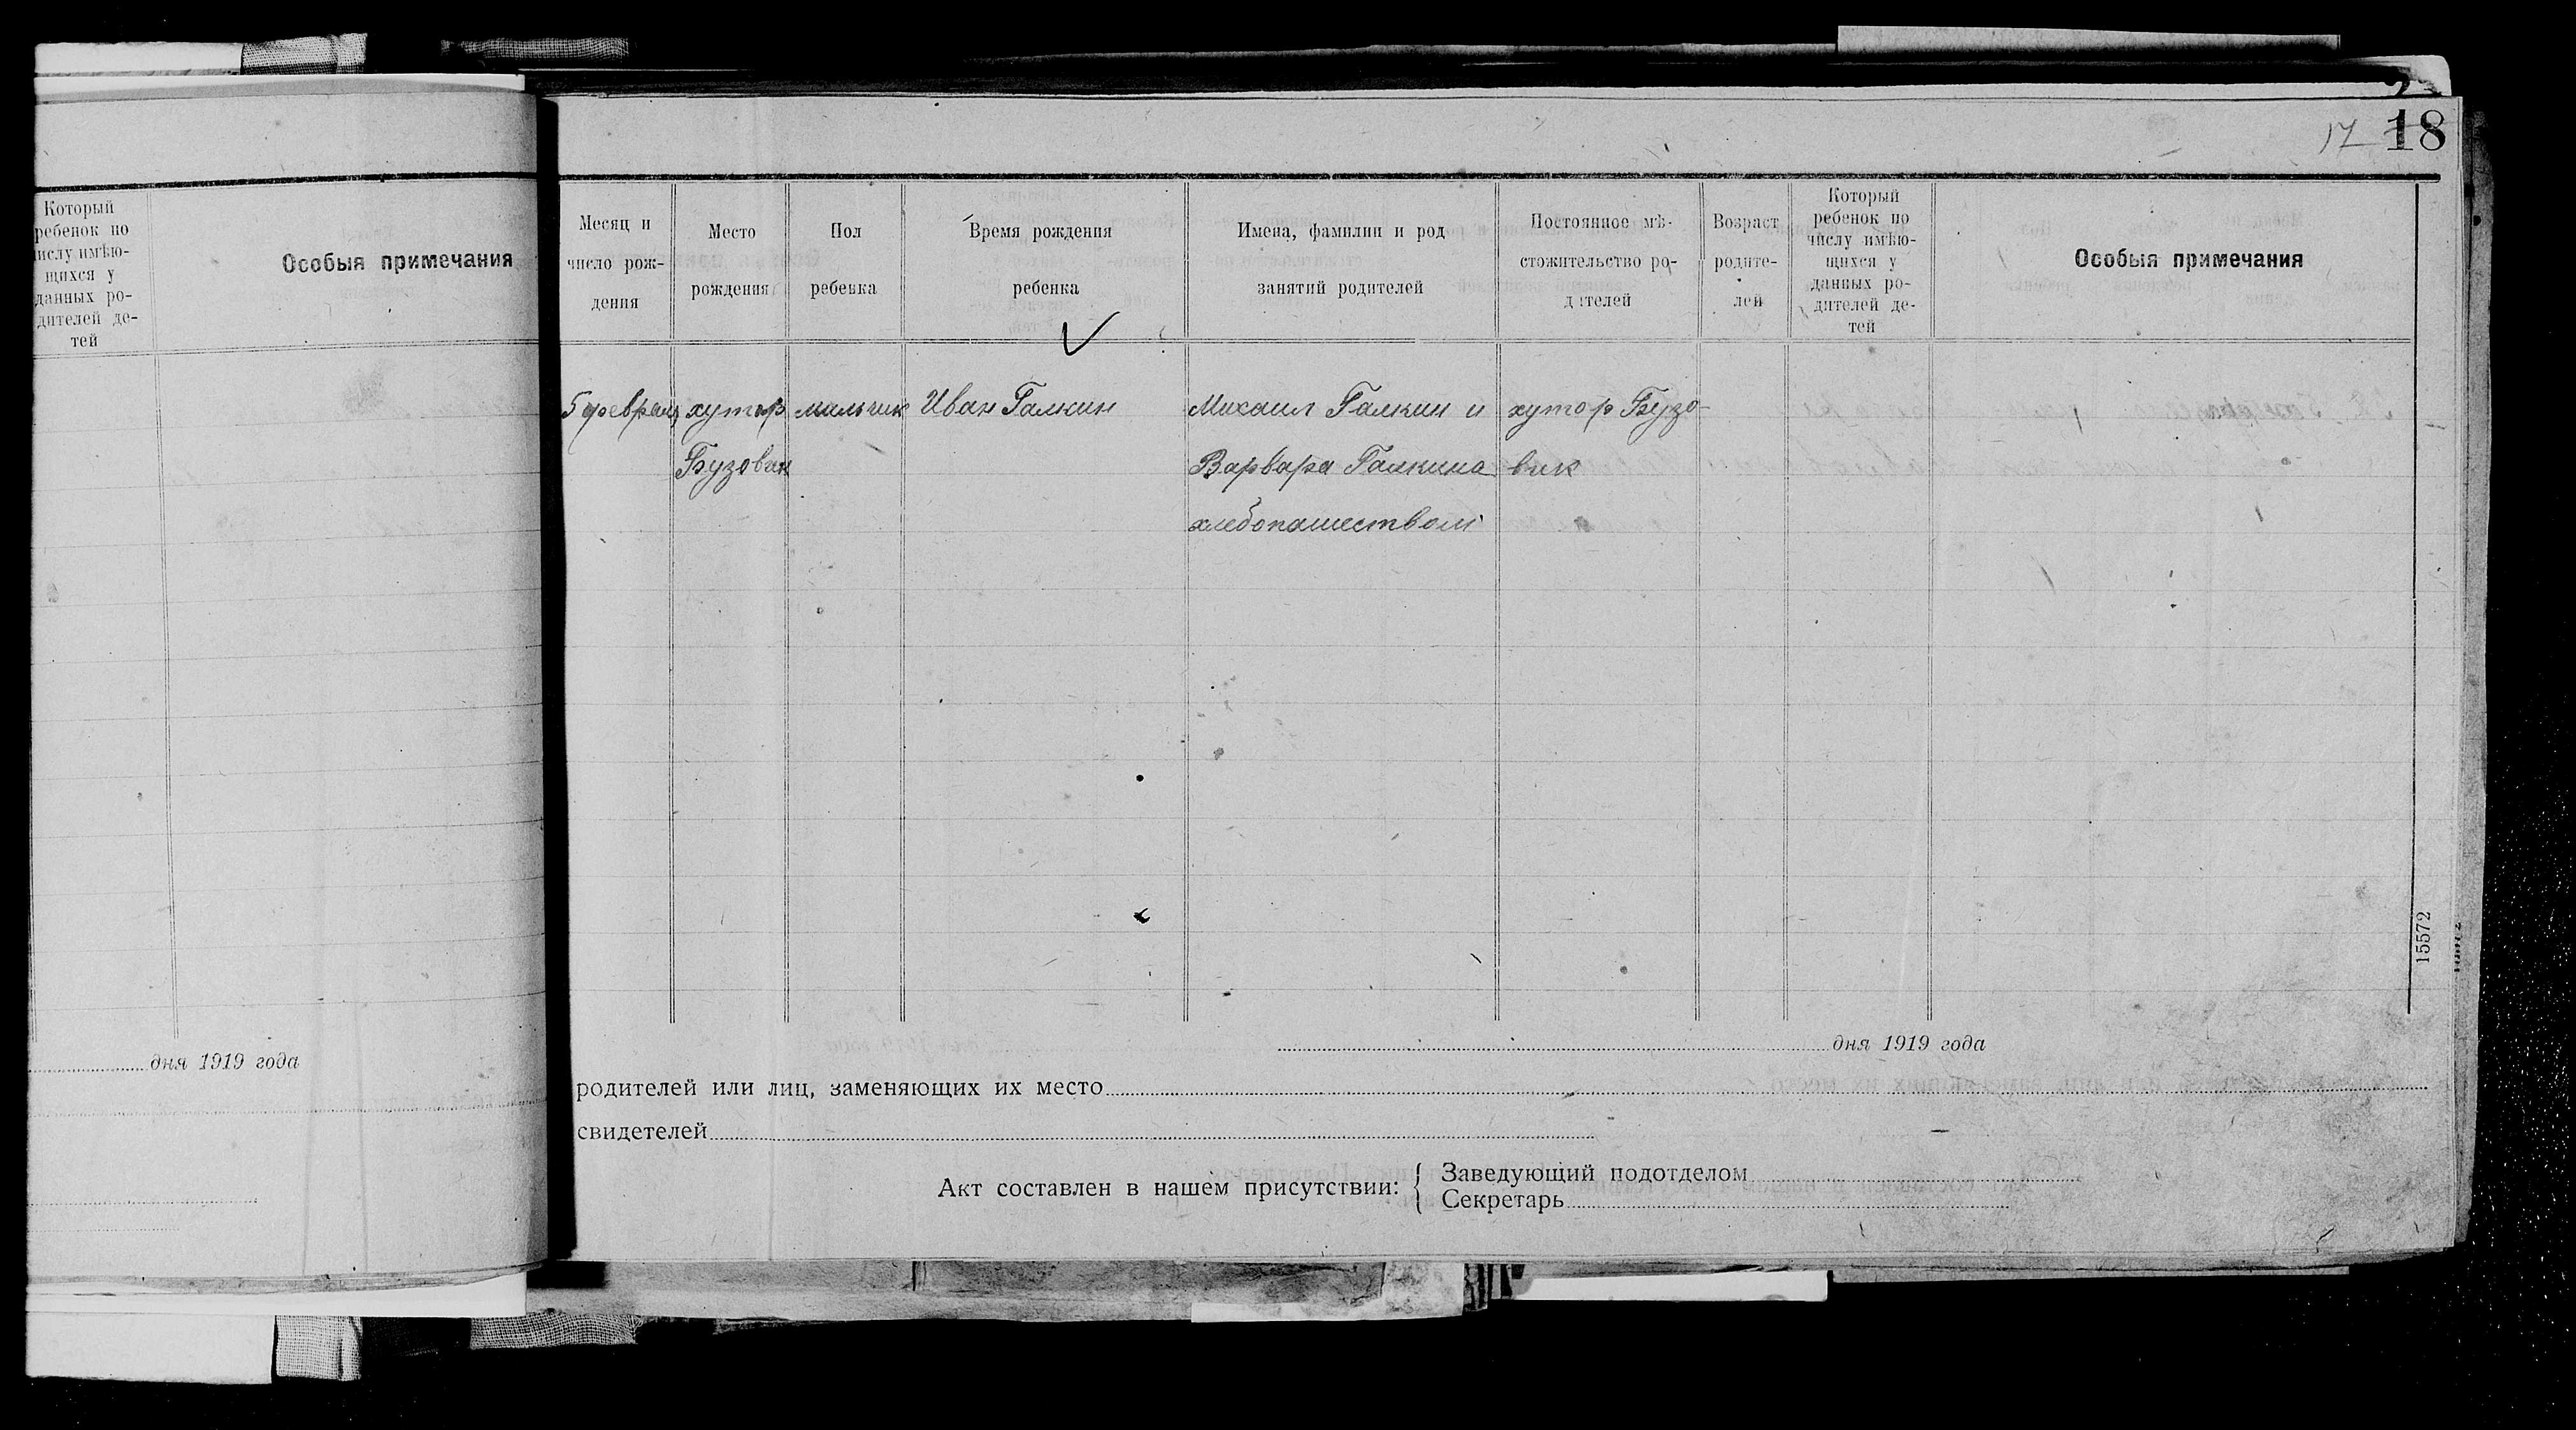 17 18
Который
ребенок по
числу имѣю-
щихся у
данных ро-
дителей де-
тей
Особыя примечания
дня 1919 года
Месяц и
число рож-
дения
Место
рождения
Пол
ребенка
Время рождения
ребенка
Имена, фамилии и род
занятий родителей
Постоянное мѣ-
стожительство ро-
дителей
Возраст
родите-
лей
Который
ребенок по
числу имѣю-
щихся у
данных ро-
дителей де-
тей
Особыя примечания
5 февраля хутор мальчик Иван Галкин Михаил Галкин и хутор Бузо-
Бузовик Варвара Галкина вик
хлебопашеством
15572
дня 1919 года
родителей или лиц, заменяющих их место
свидетелей
Акт составлен в нашем присутствии: { Заведующий подотделом
Секретарь